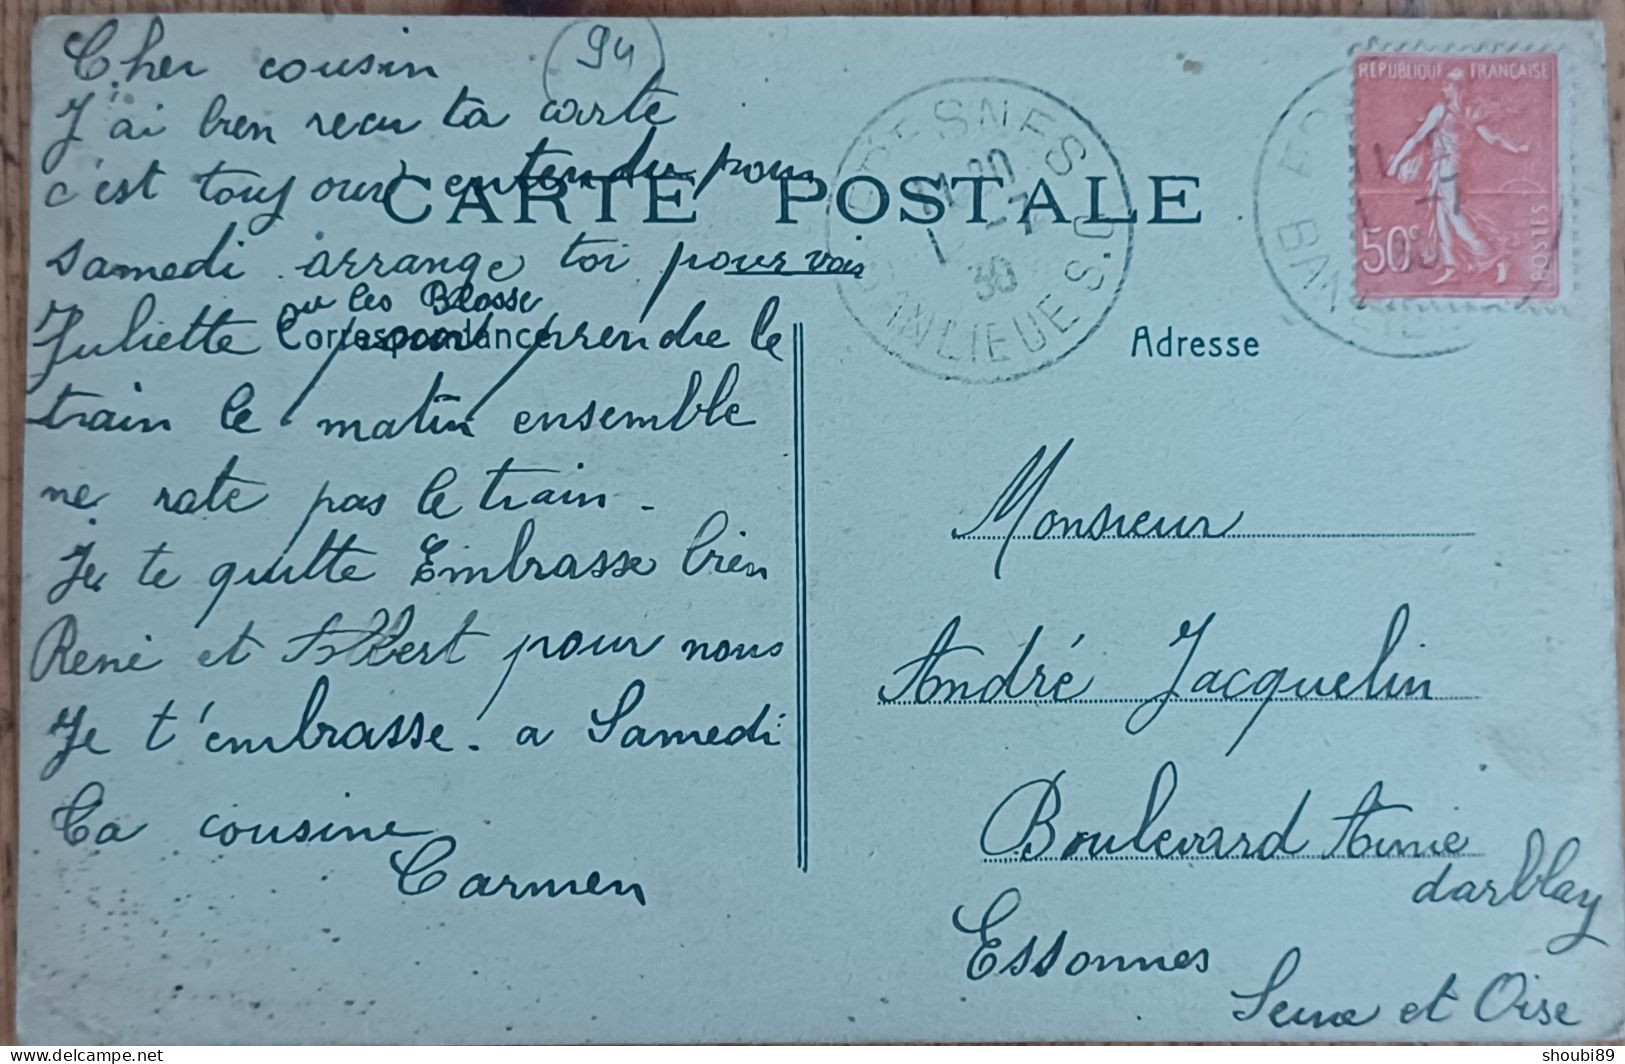 Cher cousin
94
J'ai bien recu ta carte
c'est toujours entendu pour
CARTE POSTALE
samedi arrange toi pour voir
ou les Blosse
Juliette pour prendre le
Correspondance
train le matin ensemble
ne rate pas le train.
Je te quitte Embrasse bien
René et Albert pour nous
Je t'embrasse. a Samedi
Ta cousine
Carmen
FRESNES
30
BANLIEUE S.O
REPUBLIQUE FRANÇAISE
50c
POSTES
Adresse
Monsieur
André Jacquelin
Boulevard Aimé
darblay
Essonnes
Seine et Oise
shoubi89